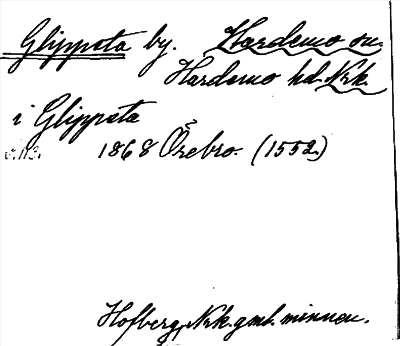 Glippsta by. Hardemo sn.
Hardemo hd. Nrk.
i Glippsta
1868 Örebro. (1552.)
Hofberg, Nrk. gml. minnen.